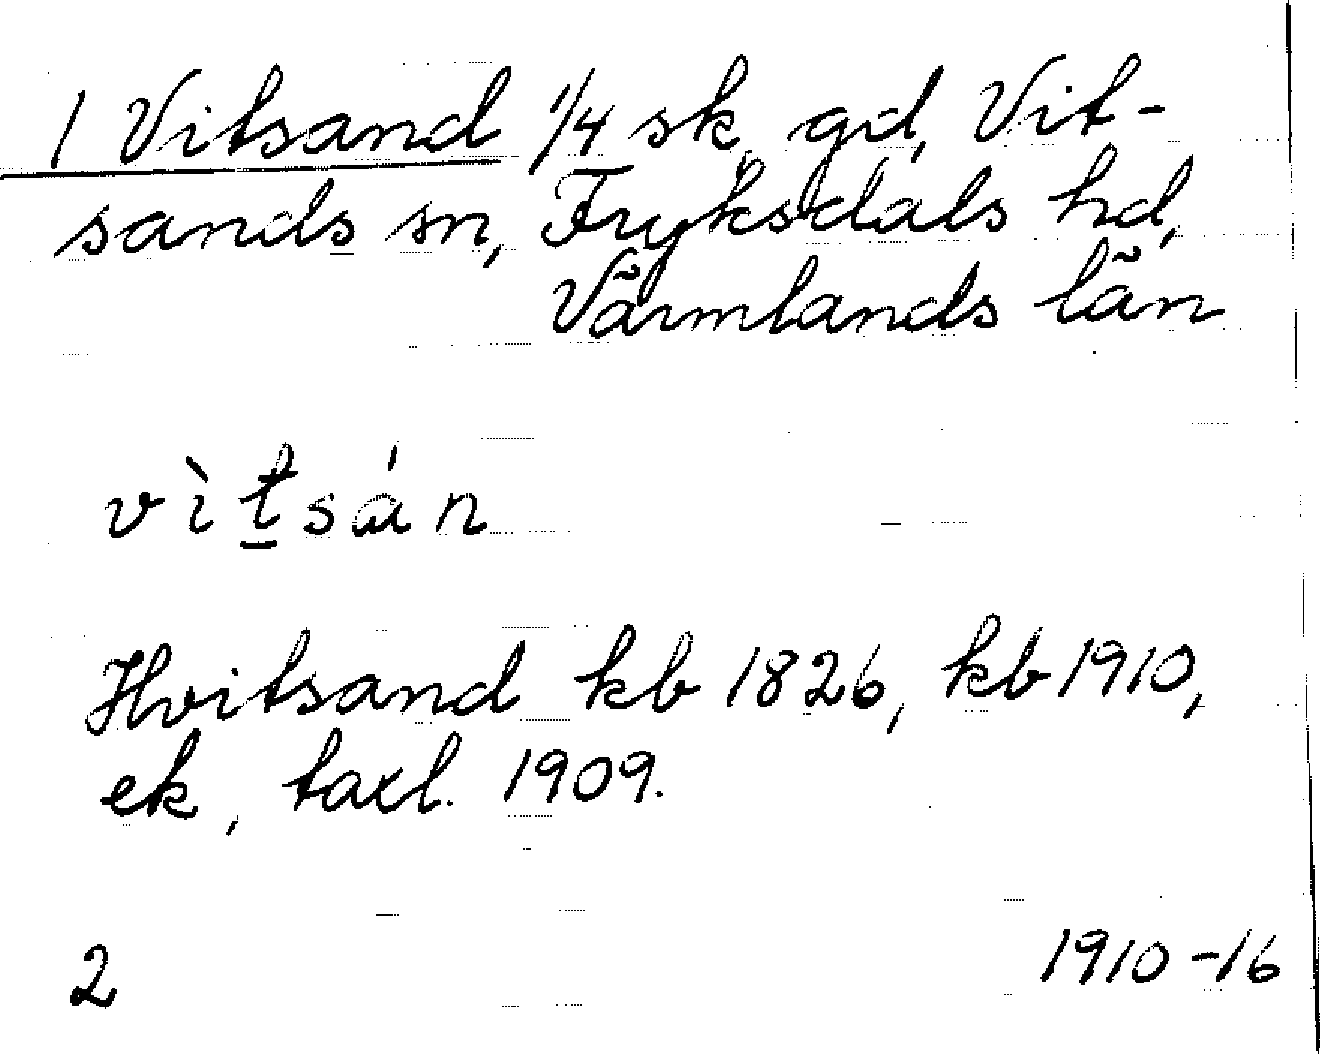 1 Vitsand 1/4 sk gd, Vit-
sands sn, Fryksdals hd,
Värmlands län
vìt̲sán
Hvitsand kb 1826, kb 1910,
ek, taxl. 1909.
2 1910-16